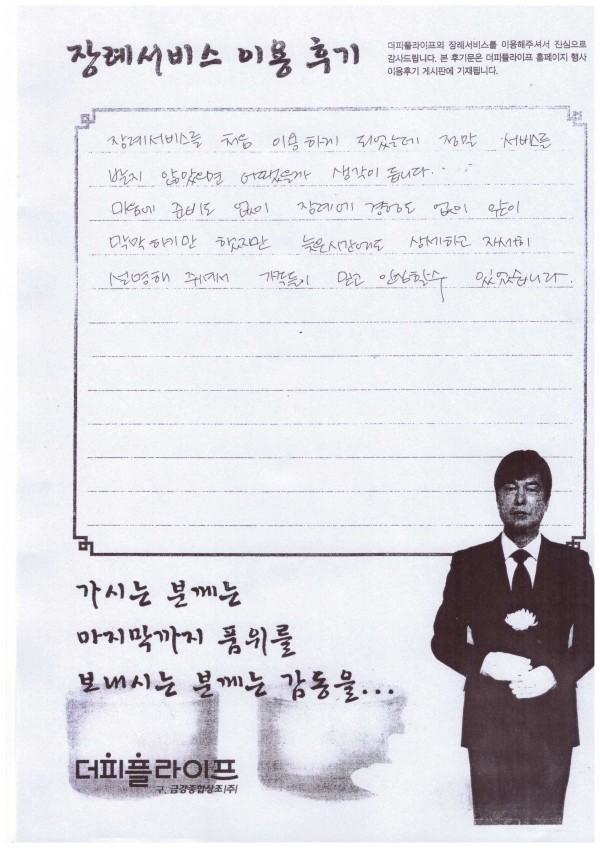 장례서비스 이용 후기
더피플라이프의 장례서비스를 이용해주셔서 진심으로
감사드립니다. 본 후기문은 더피플라이프 홈페이지 행사
이용후기 게시판에 기재됩니다.
장례서비스를 처음 이용하게 되었는데 정막 서비스를
받지 않았으면 어땠을까 생각이 듭니다.
마음에 준비도 없이 장례에 경험도 없이
막막하기만 했지만 늦은시간에도 상세하고 자세히
설명해 주셔서 가족들이 믿고 안심할수 있었습니다.
가시는 분께는
마지막까지 품위를
보내시는 분께는 감동을...
더피플라이프
구. 금강종합상조(주)